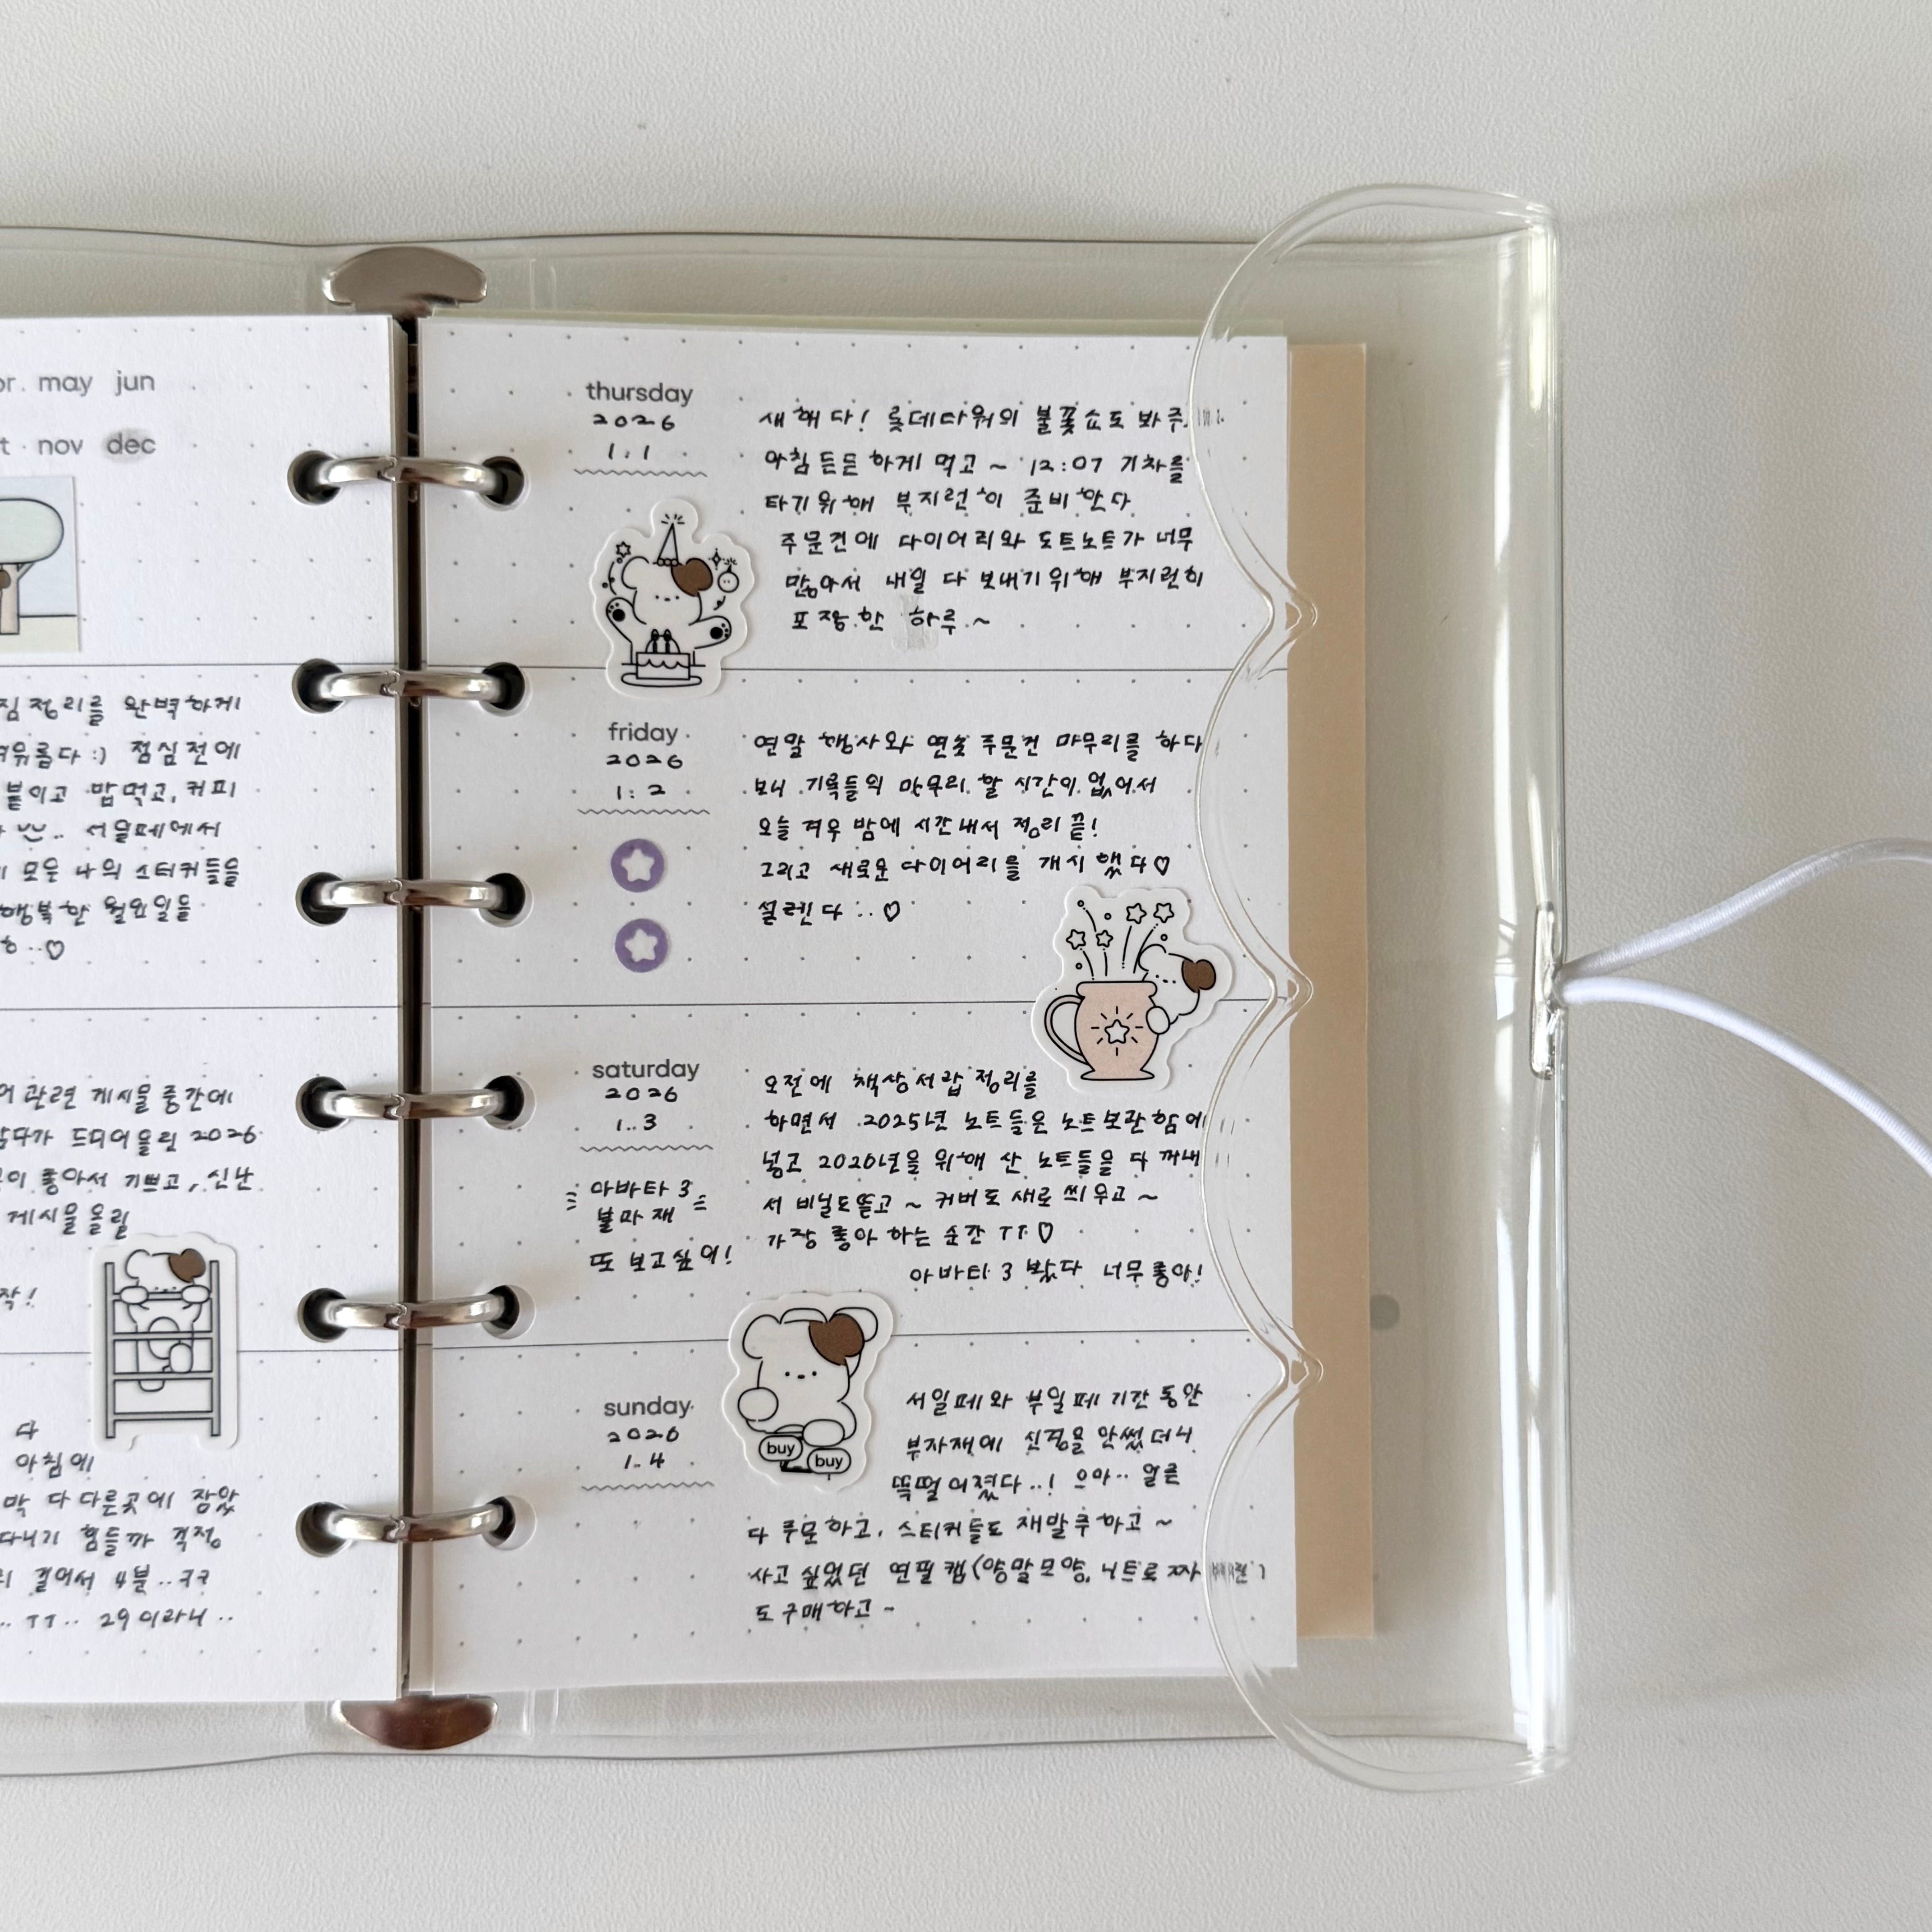 or may jun
t nov dec
짐정리를 완벽하게
여유롭다 :) 점심전에
붙이고 밥먹고, 커피
서일페에서
모은 나의 스티커들을
행복한 월요일을
♡
관련 게시물 중간에
드디어올린 2026
이 좋아서 기쁘고, 신난
게시물을올릴
작!
다
아침에
박 다 다른곳에 잡았
다니기 힘들까 걱정
걸어서 4분..ㅋㅋ
.. ㅜㅜ.. 29이라니..
thursday
2026
1.1
새해다! 롯데타워의 불꽃쇼도 봐주
아침 든든하게 먹고 ~ 12:07 기차를
타기위해 부지런히 준비한다
주문건에 다이어리와 도트노트가 너무
많아서 내일 다 보내기위해 부지런히
포장한 하루~
friday
2026
1. 2
연말 행사와 연초 주문건 마무리를 하다
보니 기록들의 마무리 할 시간이 없어서
오늘 겨우 밤에 시간내서 정리 끝!
그리고 새로운 다이어리를 개시했다♡
설렌다..♡
saturday
2026
1. 3
아바타 3
불과 재
또 보고싶어!
오전에 책상서랍 정리를
하면서 2025년 노트들은 노트보관함에
넣고 2026년을 위해 산 노트들을 다 꺼내
서 비닐도뜯고 ~ 커버도 새로 씌우고 ~
가장 좋아하는 순간 ㅜㅜ♡
아바타 3 봤다 너무좋아!
sunday
2026
1. 4
buy
buy
서일페와 부일페 기간 동안
부자재에 신경을 안썼더니
똑떨어졌다..! 으아.. 얼른
다 주문하고, 스티커들도 재발주하고 ~
사고싶었던 연필캡(양말모양, 니트로 짜
도 구매하고 ~